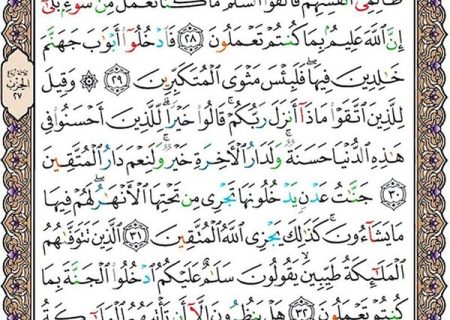 ظَالِمِىٓ أَنفُسِهِمْ فَأَلْقَوُا۟ ٱلسَّلَمَ مَا كُنَّا نَعْمَلُ مِن سُوٓءٍۭ بَلَىٰٓ
إِنَّ ٱللَّهَ عَلِيمٌۢ بِمَا كُنتُمْ تَعْمَلُونَ ٢٨ فَٱدْخُلُوٓا۟ أَبْوَٰبَ جَهَنَّمَ
خَٰلِدِينَ فِيهَا فَلَبِئْسَ مَثْوَى ٱلْمُتَكَبِّرِينَ ٢٩ ۞ وَقِيلَ
لِلَّذِينَ ٱتَّقَوْا۟ مَاذَآ أَنزَلَ رَبُّكُمْ ۚ قَالُوا۟ خَيْرًا ۗ لِّلَّذِينَ أَحْسَنُوا۟ فِى
هَٰذِهِ ٱلدُّنْيَا حَسَنَةٌ ۚ وَلَدَارُ ٱلْءَاخِرَةِ خَيْرٌ ۚ وَلَنِعْمَ دَارُ ٱلْمُتَّقِينَ
٣٠ جَنَّٰتُ عَدْنٍ يَدْخُلُونَهَا تَجْرِى مِن تَحْتِهَا ٱلْأَنْهَٰرُ ۖ لَهُمْ فِيهَا
مَا يَشَآءُونَ ۚ كَذَٰلِكَ يَجْزِى ٱللَّهُ ٱلْمُتَّقِينَ ٣١ ٱلَّذِينَ تَتَوَفَّىٰهُمُ
ٱلْمَلَٰٓئِكَةُ طَيِّبِينَ ۙ يَقُولُونَ سَلَٰمٌ عَلَيْكُمُ ٱدْخُلُوا۟ ٱلْجَنَّةَ بِمَا
كُنتُمْ تَعْمَلُونَ ٣٢ هَلْ يَنظُرُونَ إِلَّآ أَن تَأْتِيَهُمُ ٱلْمَلَٰٓئِكَةُ
الحزب
٢٧